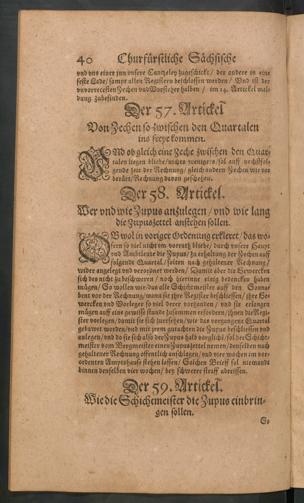 40 Churfürstliche Sächsische
vnd vns einer jnn vnsere Cantzeley zugeschickt / der andere in eine
feste Lade / sampt allen Registern beschlossen werden / Vnd ist der
vnuorrecesten Zechen vnd Vorleger halben / im 14. Artickel mel-
dung zubefinden.
Der 57. Artickel
Von Zechen so zwischen den Quartalen
ins freye kommen.
VNd ob gleich eine Zeche zwischen den Quar-
talen liegen bliebe / nichts weniger sol auff nechstfol-
gende zeit der Rechnung / gleich andern Zechen wie vor
berürt / Rechnung dauon geschehen.
Der 58. Artickel.
Wer vnd wie Zupus anzulegen / vnd wie lang
die Zupuszettel anstehen sollen.
OBwol in voriger Ordenung erkleret / das wo-
fern so viel nicht im vorrath bliebe / durch vnsere Haupt
vnd Amptleute die Zupus / zu erhaltung der Zechen auff
folgende Quartal / solten nach gehaltener Rechnung /
wider angelegt vnd verordnet werden / Damit aber die Gewercken
sich des nicht zu beschweren / noch hierinne einig bedencken haben
mügen / So wollen wir / das alle Schichtmeister auff den Sonna-
bent vor der Rechnung / wenn sie jhre Register beschliessen / jhre Ge-
wercken vnd Vorleger so viel derer vorhanden / vnd sie erlangen
mügen auff eine gewisse stunde zusammen erfordern / jhnen die Regi-
ster vorlegen / damit sie sich zuersehen / wie das vergangene Quartal
gebawet worden / vnd mit jrem gutachten die Zupus beschliessen vnd
anlegen / vnd do sie sich also der Zupus halb vorglichen / sol der Schicht-
meister vom Bergmeister einen Zupuszettel nemen / denselben nach
gehaltener Rechnung öffentlich anschlagen / vnd vier wochen am vor-
ordenten Ampthause stehen lassen / Solchen Brieff sol niemands
binnen denselben vier wochen / bey schwerer straff abreissen.
Der 59. Artickel.
Wie die Schichtmeister die Zupus einbrin-
gen sollen.